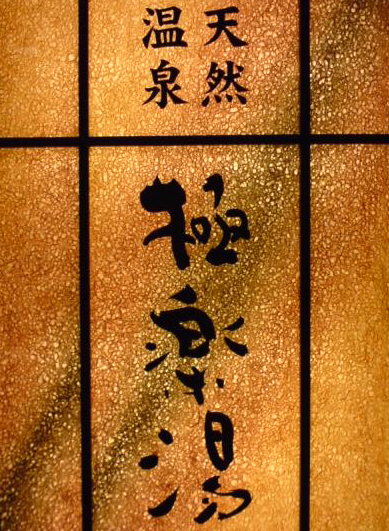 天然
温泉
極楽湯